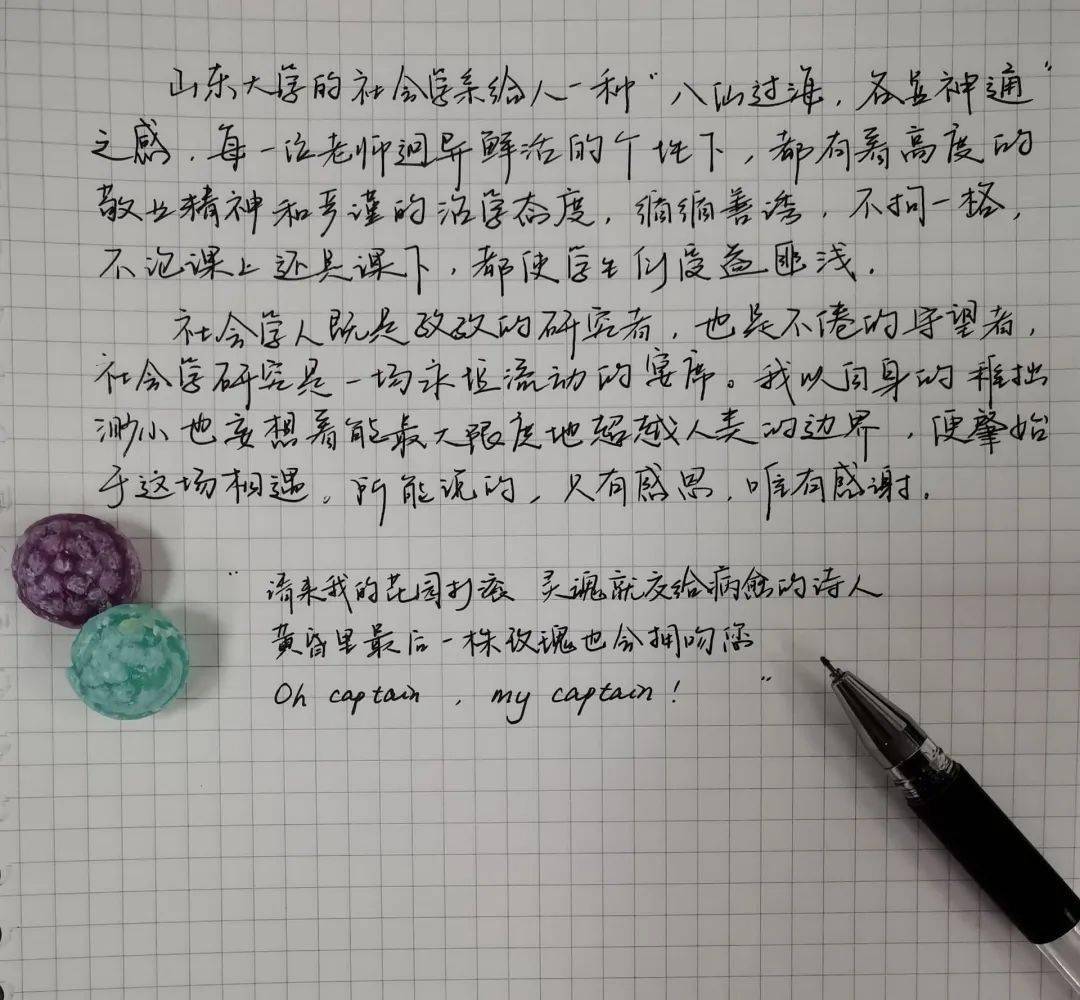 山东大学的社会学系给人一种“八仙过海，各显神通”
之感，每一位老师迥异鲜活的个性下，都有着高度的
敬业精神和严谨的治学态度，循循善诱，不拘一格，
不论课上还是课下，都使学生们受益匪浅。
社会学人既是孜孜的研究者，也是不倦的守望者，
社会学研究是一场永恒流动的宴席。我以自身的稚拙
渺小也妄想着能最大限度地超越人类的边界，便肇始
于这场相遇。所能说的，只有感恩，唯有感谢。
“请来我的花园打滚 灵魂就交给病愈的诗人
黄昏里最后一株玫瑰也会拥吻您
Oh captain, my captain!”